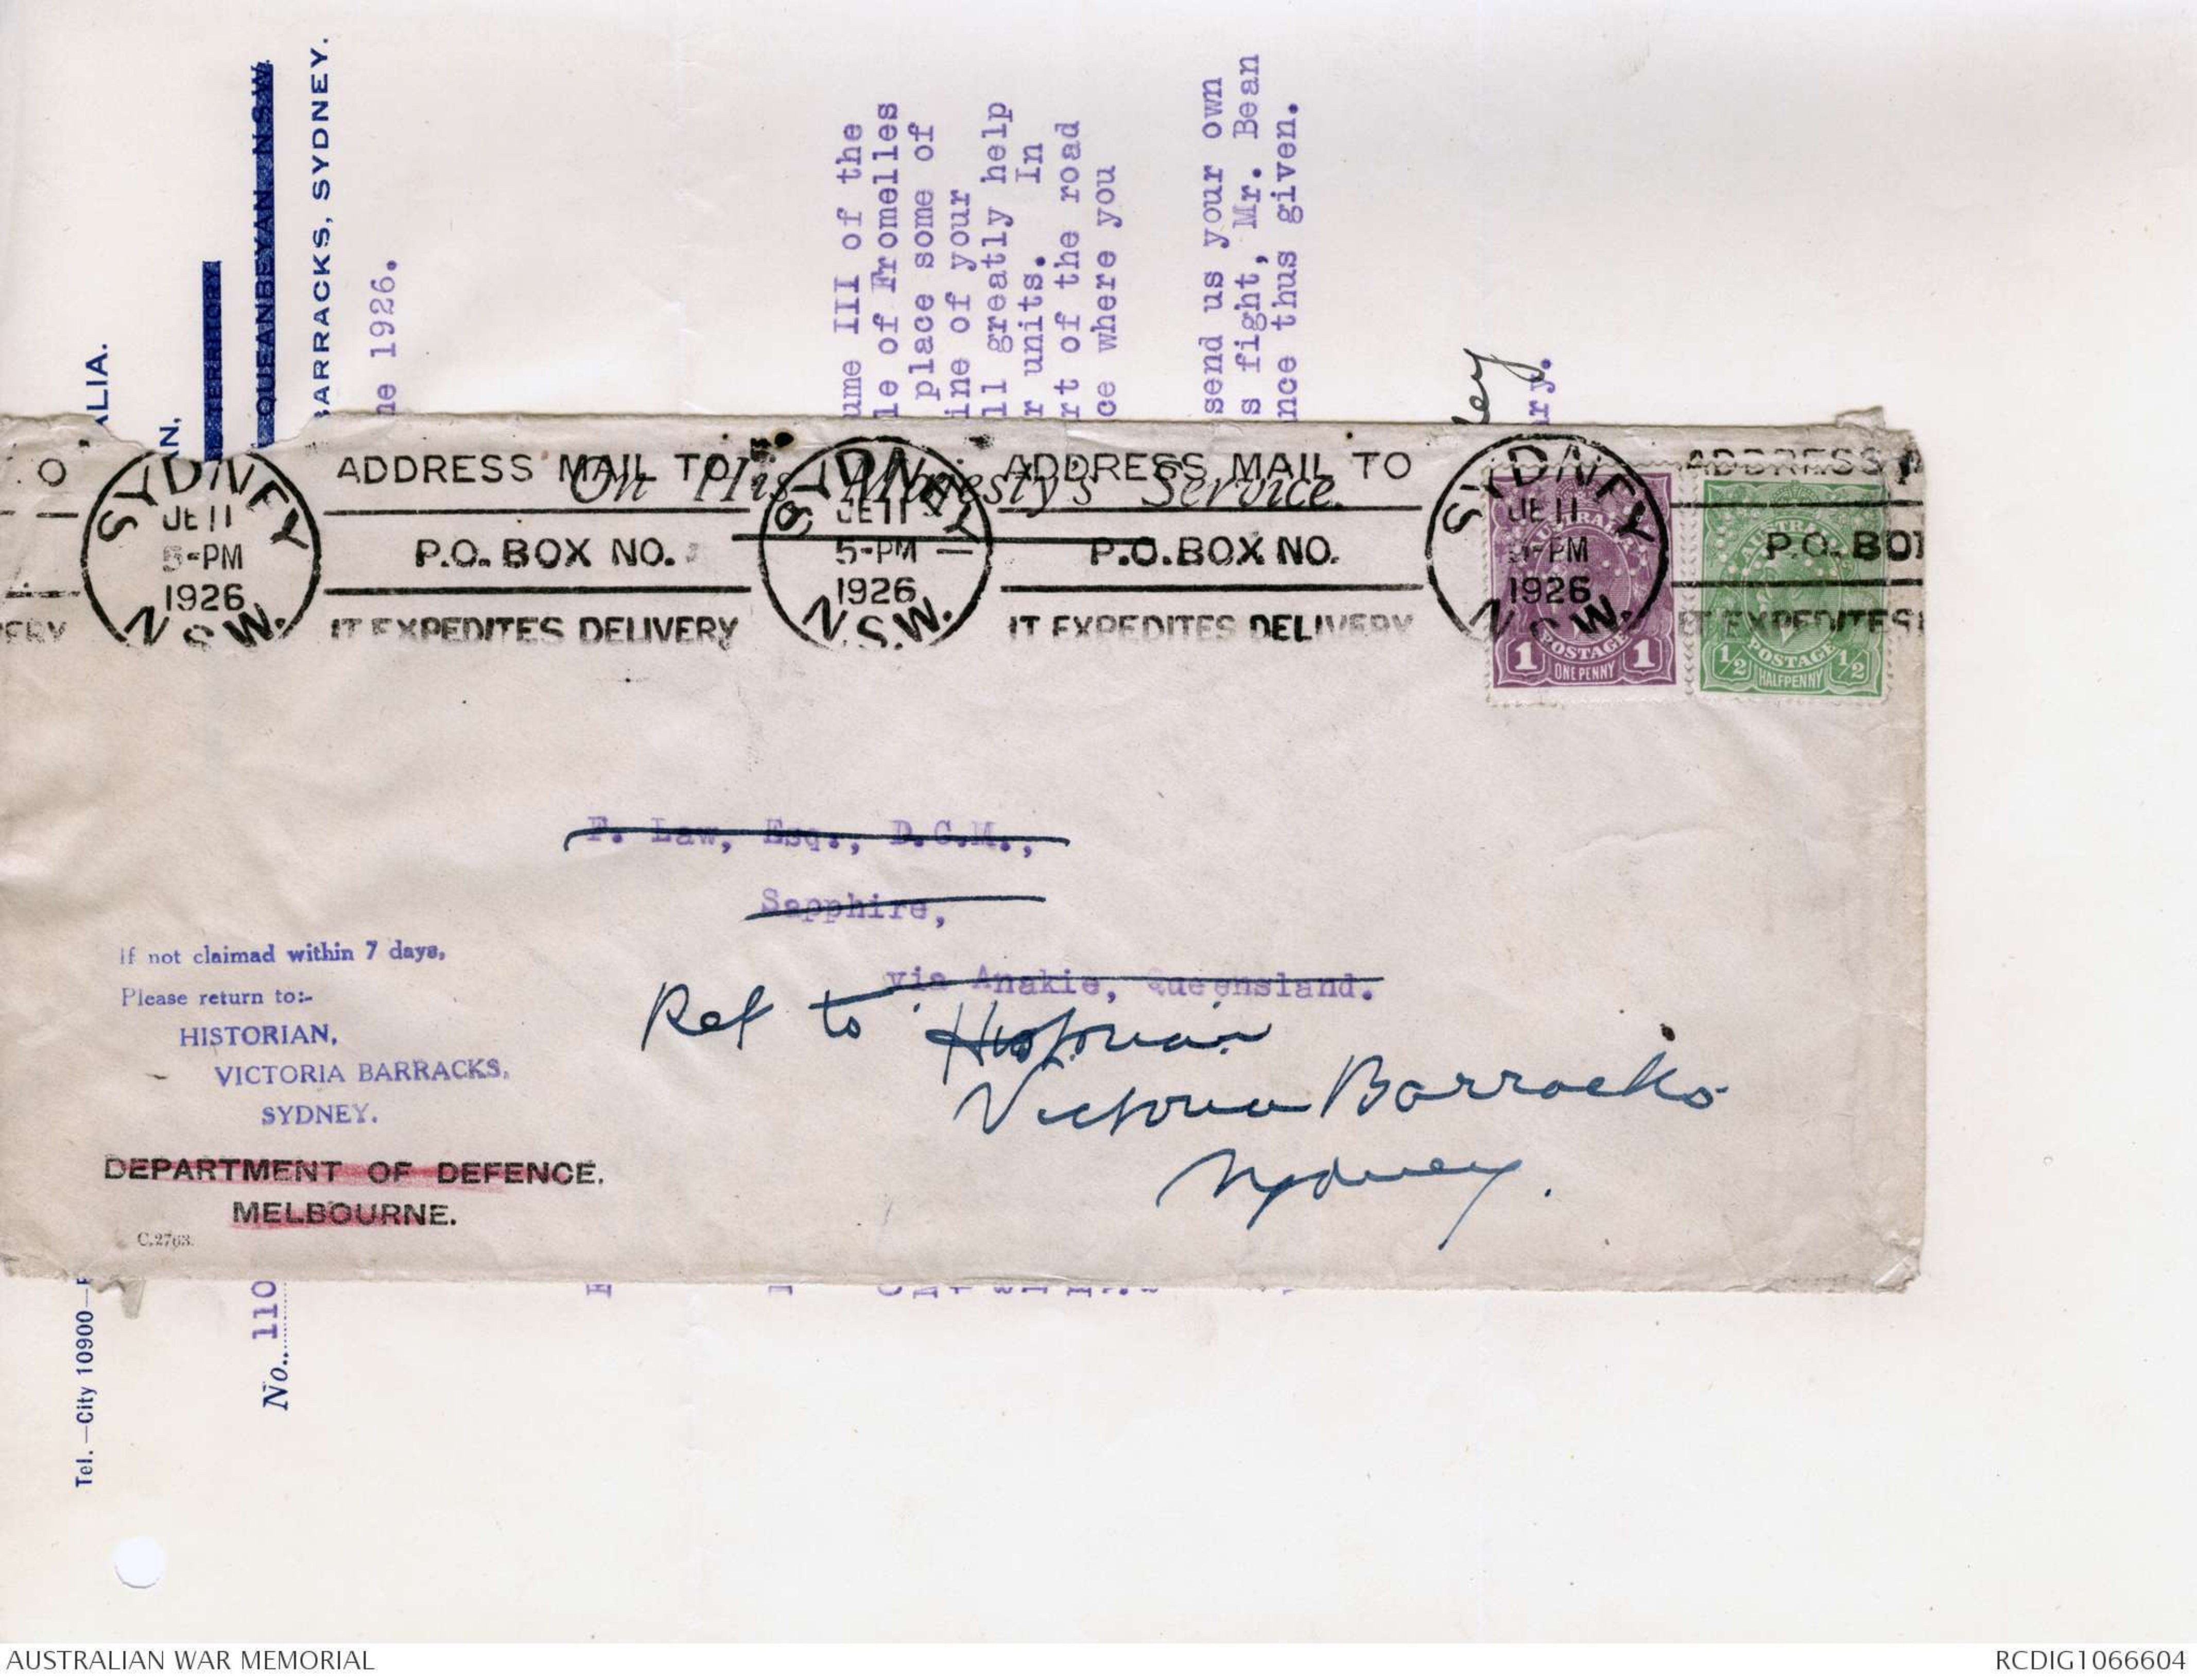 ALIA.
AN,
TERRITORY
QUEANBEYAN N.S.W.
BARRACKS, SYDNEY.
ne 1926.
ume III of the
le of Fromelles
place some of
ine of your
ll greatly help
r units. In
rt of the road
ce where you
send us your own
s fight, Mr. Bean
nce thus given.
ley
ary.
SYDNEY
JE 11
5-PM
1926
N.S.W.
ADDRESS MAIL TO
P.O. BOX NO.
IT EXPEDITES DELIVERY
SYDNEY
JE 11
5-PM
1926
N.S.W.
ADDRESS MAIL TO
P.O. BOX NO.
IT EXPEDITES DELIVERY
SYDNEY
JE 11
5-PM
1926
N.S.W.
ADDRESS
P.O. BO
IT EXPEDITES
On His Majesty's Service.
AUSTRALIA
POSTAGE
1 ONE PENNY 1
AUSTRALIA
POSTAGE
1/2 HALFPENNY 1/2
F. Law, Esq., D.C.M.,
Sapphire,
via Anakie, Queensland.
Ret to Historian
Victoria Barracks
Sydney.
If not claimad within 7 days,
Please return to:-
HISTORIAN,
VICTORIA BARRACKS,
SYDNEY.
DEPARTMENT OF DEFENCE.
MELBOURNE.
C.2763.
Tel.—City 10900—
No. 110
AUSTRALIAN WAR MEMORIAL
RCDIG1066604